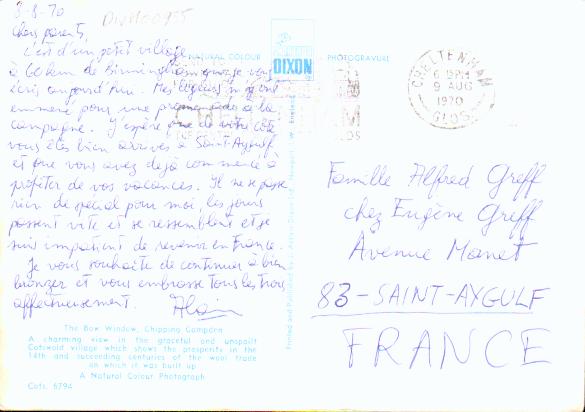 8-8-70
DIVM00955
Chers parents,
C'est d'un petit village
à 60 km de Birmingham que je vous
écris aujourd'hui. Mes logeurs m'ont
emmené pour une promenade à la
campagne. J'espère que de votre côté
vous êtes bien arrivés à Saint Aygulf
et que vous avez déjà commencé à
profiter de vos vacances. Il ne se passe
rien de spécial pour moi, les jours
passent vite et se ressemblent et je
suis impatient de revenir en France.
Je vous souhaite de continuer à bien
bronzer et vous embrasse tous les trois
affectueusement. Alain
The Bow Window, Chipping Campden
A charming view in the graceful and unspoilt
Cotswold village which shows the prosperity in the
14th and succeeding centuries of the wool trade
on which it was built up
A Natural Colour Photograph
Cots. 6794
NATURAL COLOUR
DIXON
PHOTOGRAVURE
Printed and Published by J. Arthur Dixon Ltd. Newport I.W. England
CHELTENHAM
6 15PM
9 AUG
1970
GLOS.
Famille Alfred Greff
chez Eugène Greff
Avenue Manet
83-SAINT-AYGULF
FRANCE